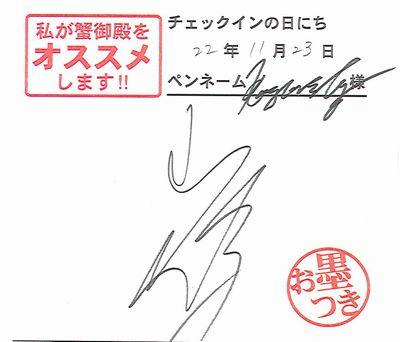 私が蟹御殿を
オススメ
します!!
チェックインの日にち
22年11月23日
ペンネーム 様
お墨つき